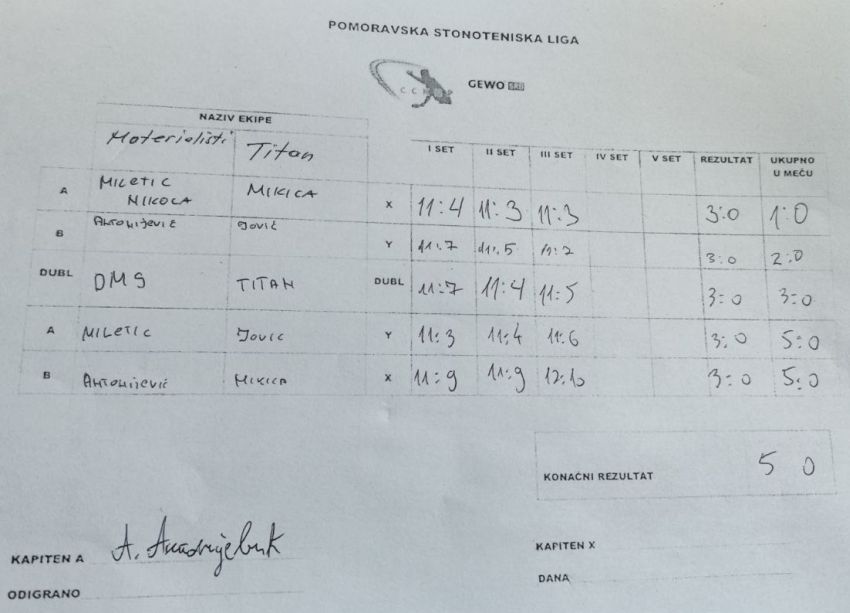 POMORAVSKA STONOTENISKA LIGA
GEWO SRB
NAZIV EKIPE
Materialisti Titan I SET II SET III SET IV SET V SET REZULTAT UKUPNO U MEČU
A MILETIC NIKOLA MIKICA X 11:4 11:3 11:3 3:0 1:0
B Antonijević Jović Y 11:7 11:5 11:2 3:0 2:0
DUBL DMS TITAN DUBL 11:7 11:4 11:5 3:0 3:0
A MILETIC Jovic Y 11:3 11:4 11:6 3:0 5:0
B Antonijević Mikica X 11:9 11:9 12:10 3:0 5:0
KONAČNI REZULTAT 5 0
KAPITEN A A. KAPITEN X
ODIGRANO DANA